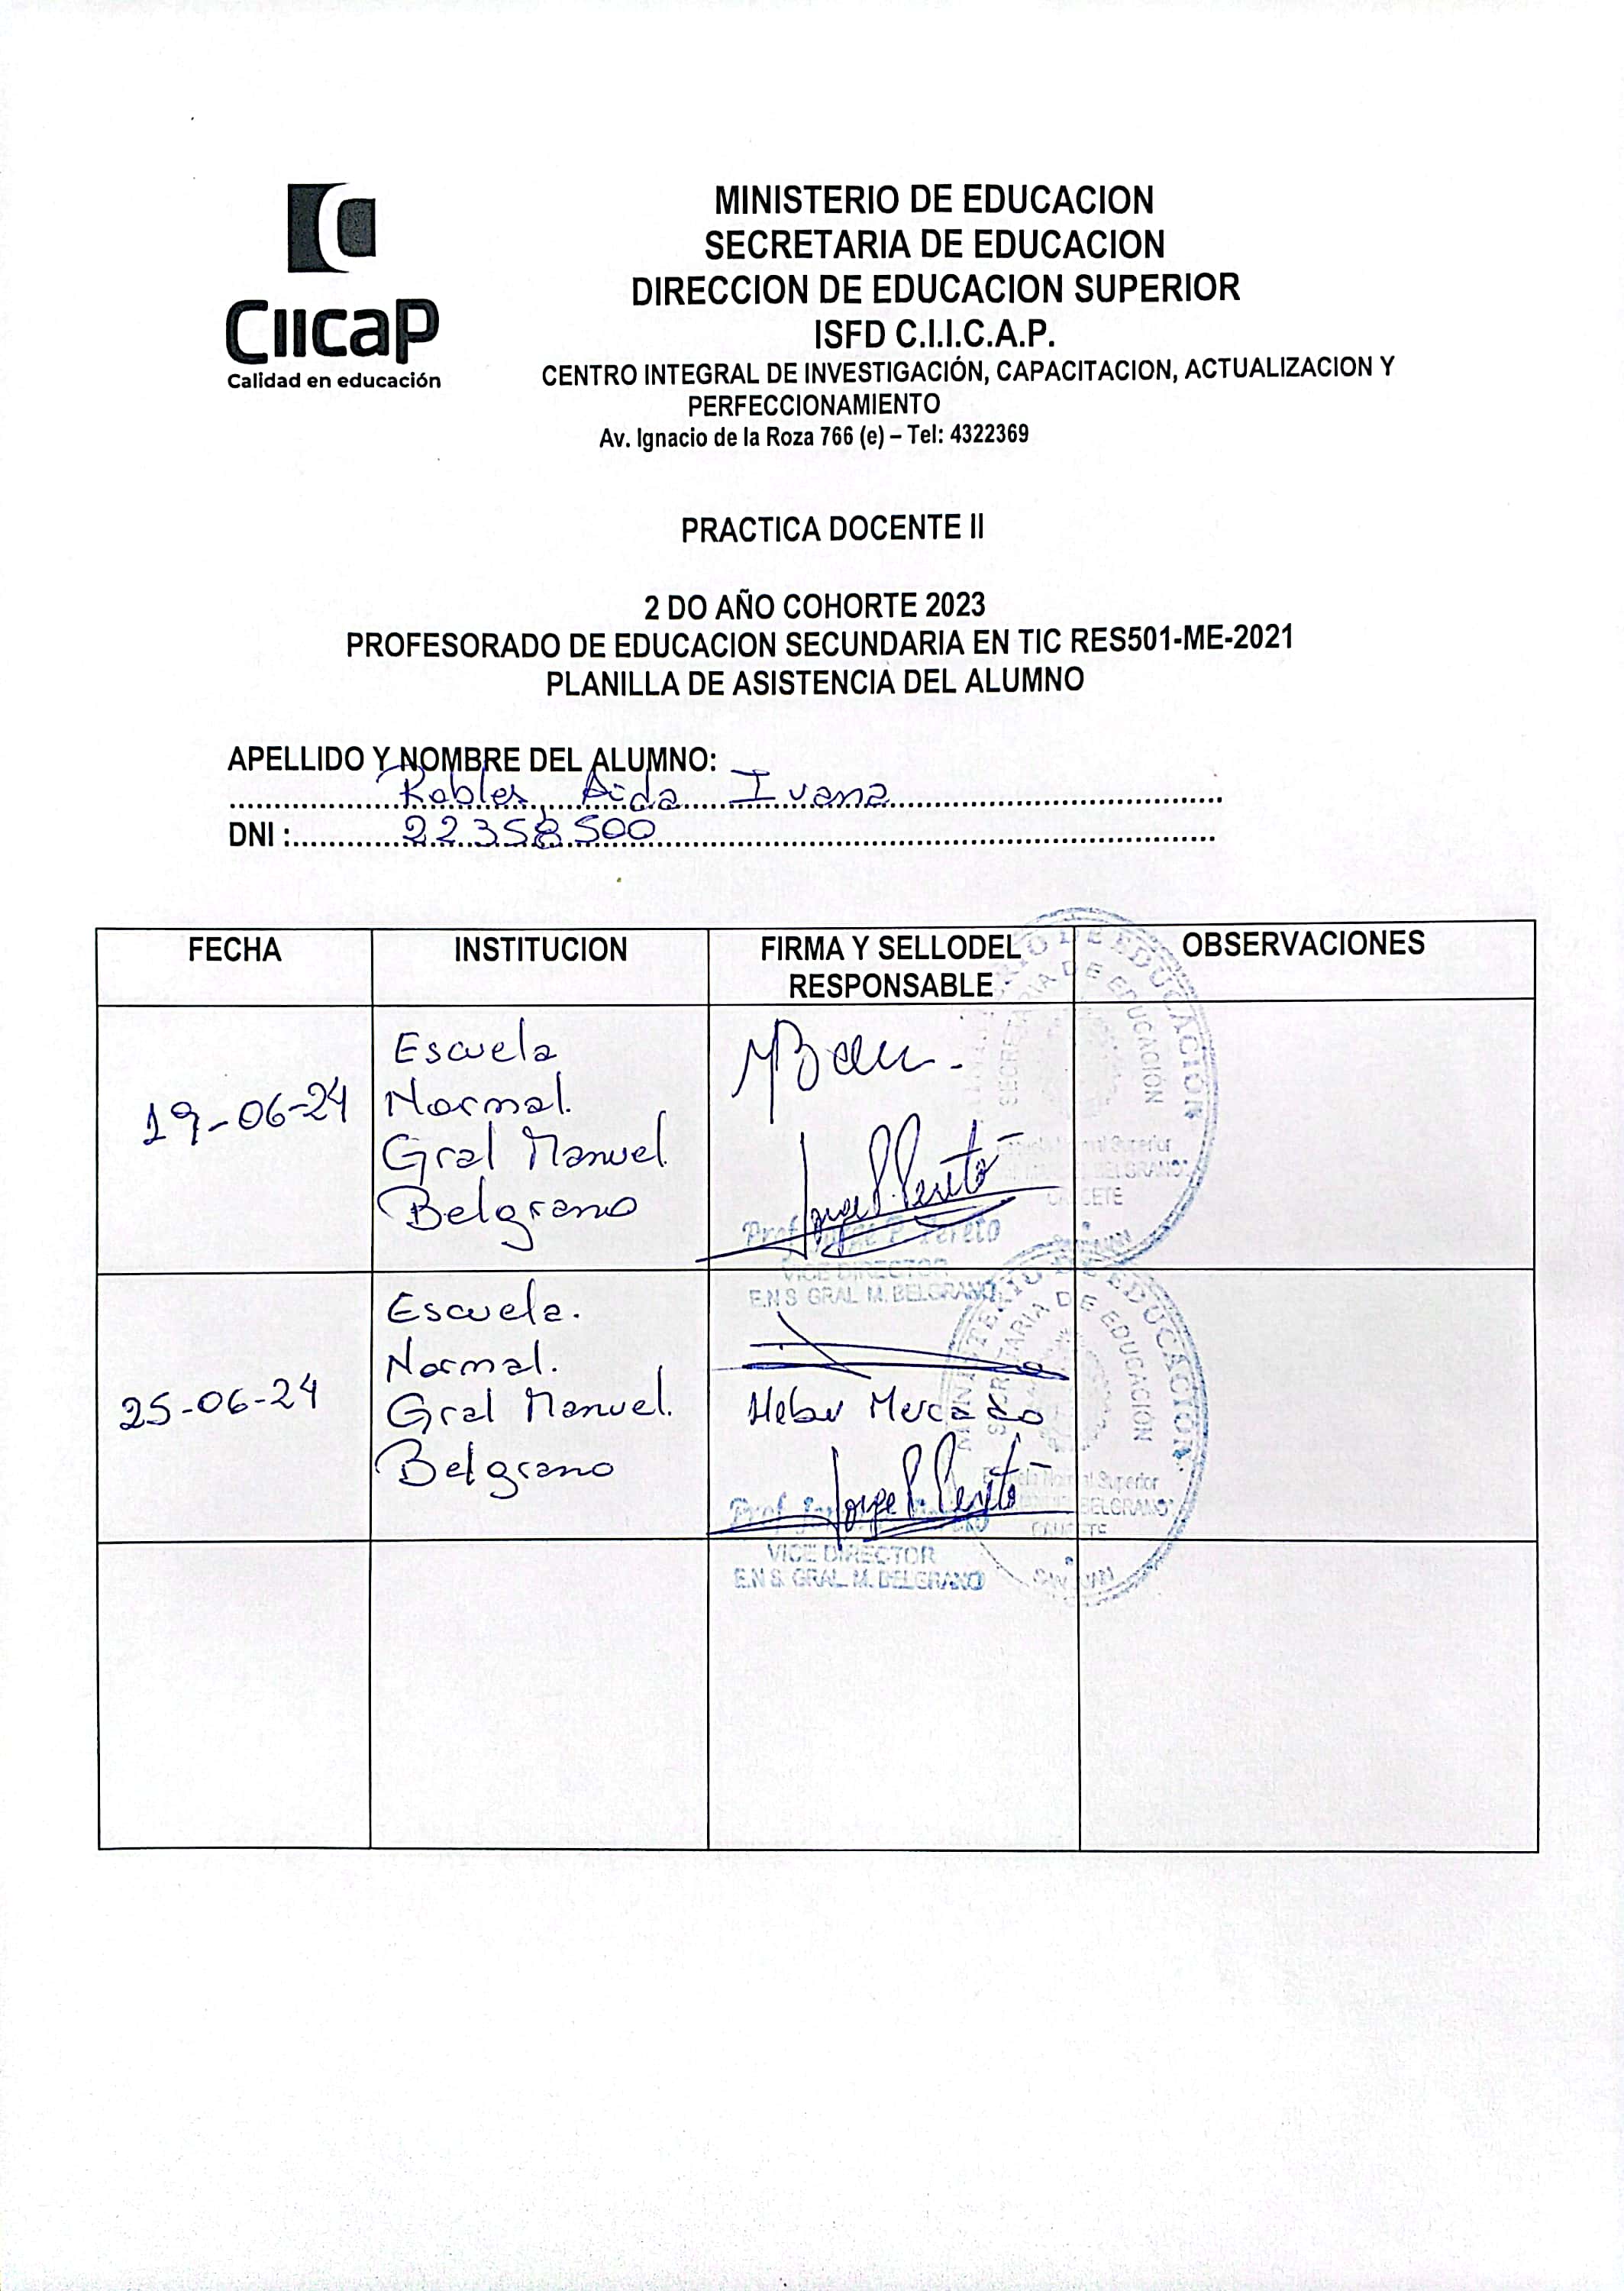 CiicaP
Calidad en educación
MINISTERIO DE EDUCACION
SECRETARIA DE EDUCACION
DIRECCION DE EDUCACION SUPERIOR
ISFD C.I.I.C.A.P.
CENTRO INTEGRAL DE INVESTIGACIÓN, CAPACITACION, ACTUALIZACION Y
PERFECCIONAMIENTO
Av. Ignacio de la Roza 766 (e) – Tel: 4322369
PRACTICA DOCENTE II
2 DO AÑO COHORTE 2023
PROFESORADO DE EDUCACION SECUNDARIA EN TIC RES501-ME-2021
PLANILLA DE ASISTENCIA DEL ALUMNO
APELLIDO Y NOMBRE DEL ALUMNO:
Robles, Aida Ivana
DNI : 22358500
FECHA INSTITUCION FIRMA Y SELLODEL RESPONSABLE OBSERVACIONES
19-06-24
Escuela
Normal.
Gral Manuel
Belgrano
Jorge P. Pereto
Prof. Jorge P. Pereto
VICE DIRECTOR
E.N.S. GRAL. M. BELGRANO
SECRETARIA DE EDUCACIÓN
Superior
BELGRANO"
25-06-24
Escuela.
Normal.
Gral Manuel.
Belgrano
Heber Mercado
Jorge P. Pereto
VICE DIRECTOR
E.N.S. GRAL. M. BELGRANO
MINISTERIO DE EDUCACIÓN
SECRETARIA DE EDUCACIÓN
Escuela Normal Superior
BELGRANO"
CAUCETE
SAN JUAN